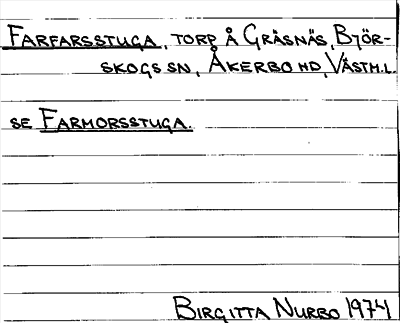 FARFARSSTUGA, TORP Å GRÄSNÄS, BJÖR-
SKOGS SN, ÅKERBO HD, VÄSTM.L.
SE FARMORSSTUGA.
BIRGITTA NURBO 1974